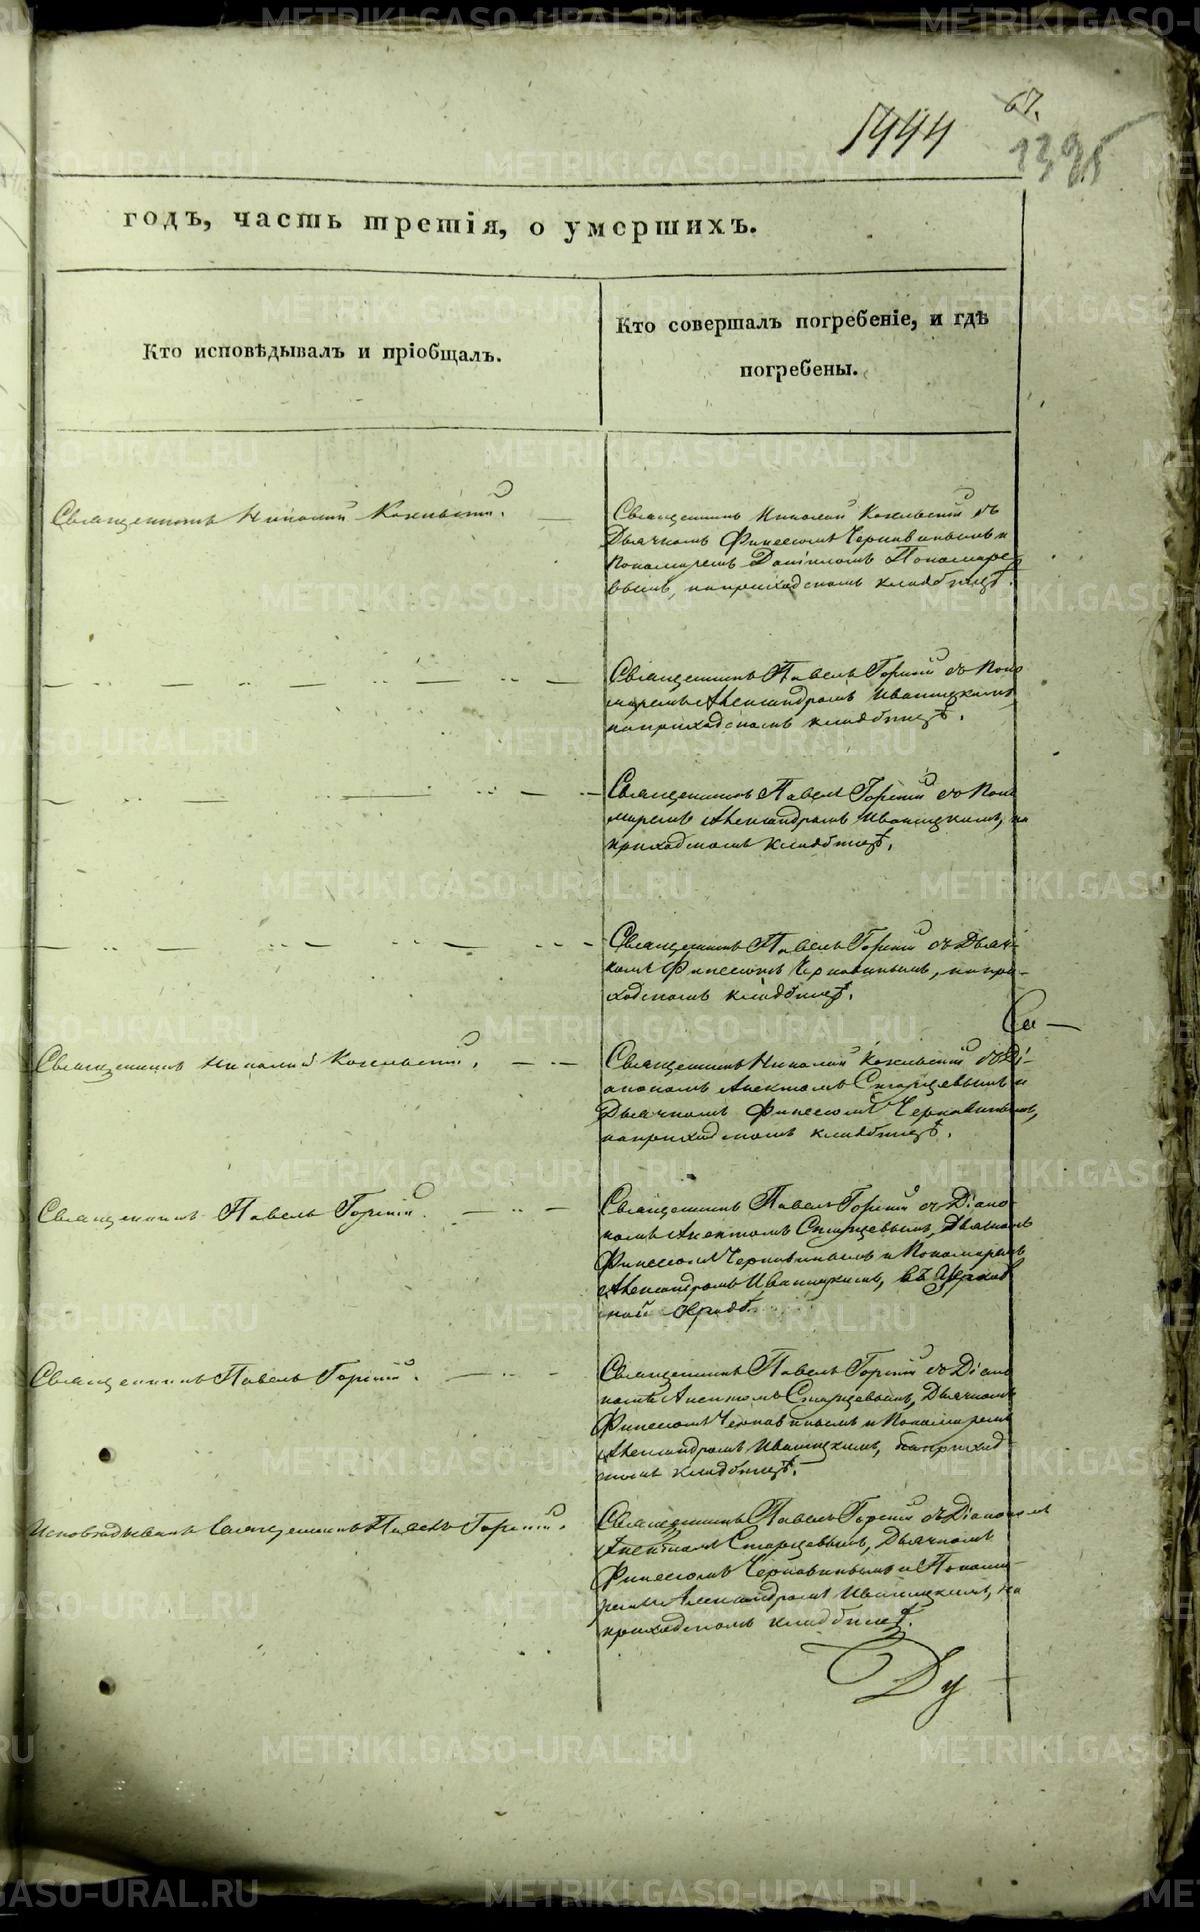 67.
1444
1395
годъ, часть третія, о умершихъ.
Кто исповѣдывалъ и пріобщалъ.
Кто совершалъ погребеніе, и гдѣ
погребены.
Священникъ Николай
Священникъ Николай съ
Дьячкомъ Финеесомъ Черновинымъ и
Пономаремъ Даніиломъ Пономаре-
вымъ, на приходскомъ кладбищѣ.
Священникъ Павелъ Горный съ Поно
маремъ Александромъ Иваницкимъ,
на приходскомъ кладбищѣ.
Священникъ Павелъ Горный съ Поно
маремъ Александромъ Иваницкимъ, на
приходскомъ кладбищѣ.
Священникъ Павелъ Горный съ Дьяч-
комъ Финеесомъ Черновинымъ, на при-
ходскомъ кладбищѣ.
Священникъ Николай
Священникъ Николай съ Ді-
акономъ Старцевымъ и
Дьячкомъ Финеесомъ Черновинымъ,
на приходскомъ кладбищѣ.
Священникъ Павелъ Горный.
Священникъ Павелъ Горный съ Діако
номъ Старцевымъ, Дьячкомъ
Финеесомъ Черновинымъ и Пономаремъ
Александромъ Иваницкимъ, въ Церков
ной оградѣ.
Священникъ Павелъ Горный.
Священникъ Павелъ Горный съ Діако
номъ Старцевымъ, Дьячкомъ
Финеесомъ Черновинымъ и Пономаремъ
Александромъ Иваницкимъ, на приход
скомъ кладбищѣ.
Исповѣдывалъ Священникъ Павелъ Горный.
Священникъ Павелъ Горный съ Діакономъ
Старцевымъ, Дьячкомъ
Финеесомъ Черновинымъ и Понома-
ремъ Александромъ Иваницкимъ, на
приходскомъ кладбищѣ.
METRIKI.GASO-URAL.RU